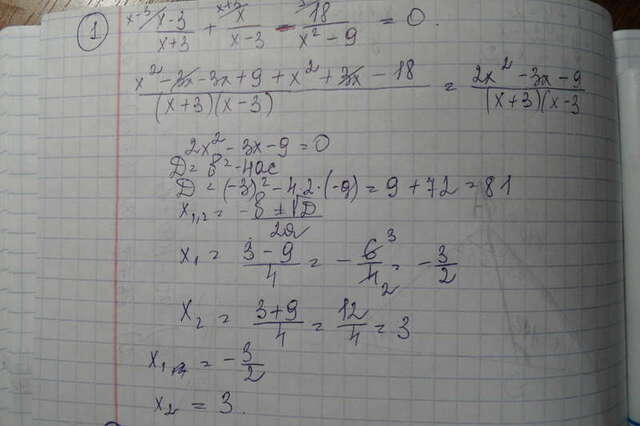 ① x-3 x-3/x+3 + x+3 x/x-3 - 18/x²-9 = 0.
x² - 3x - 3x + 9 + x² + 3x - 18/(x+3)(x-3) = 2x² - 3x - 9/(x+3)(x-3
2x² - 3x - 9 = 0
D = b² - 4ac
D = (-3)² - 4·2·(-9) = 9 + 72 = 81
x₁,₂ = -b ± √D/2a
x₁ = 3-9/4 = - 6 3/4 2 = - 3/2
x₂ = 3+9/4 = 12/4 = 3
x₁ = - 3/2
x₂ = 3.